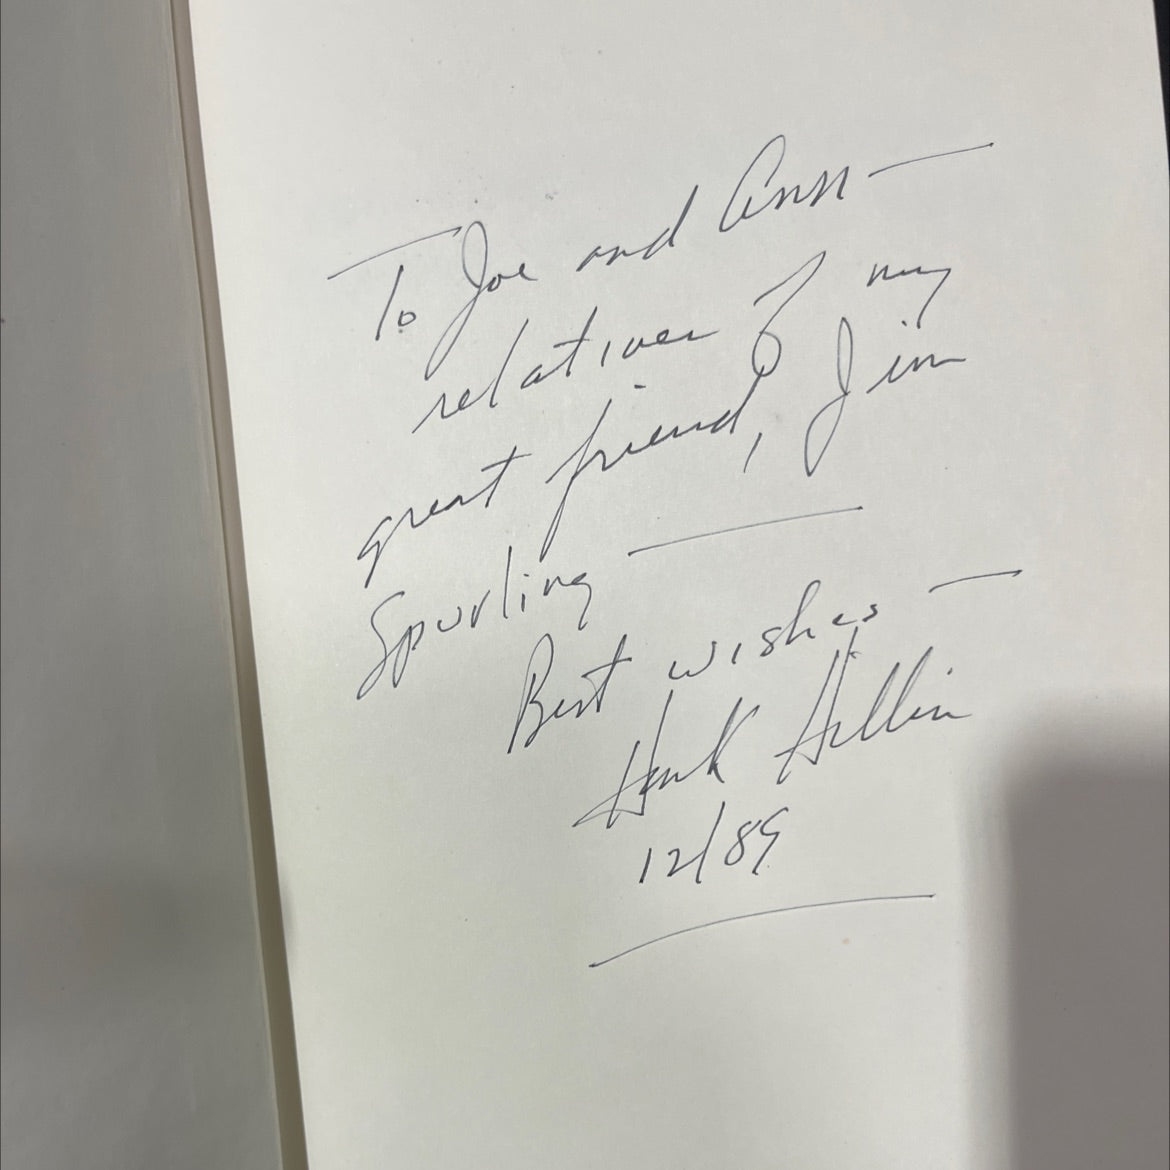 To Joe and Ann —
relatives of my
great friend, Jim
Spurling —
Best wishes —
Hank Hillin
12/89